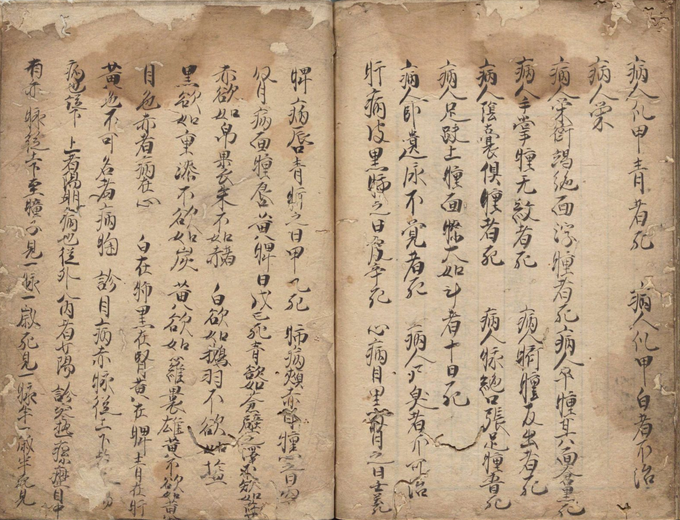 病人爪甲青者死 病人爪甲白者不治
病人荣
病人荣衛竭絶面浮腫者死病人卒腫其面蒼黑死
病人手掌腫无紋者死 病人臍腫反出者死
病人陰囊俱腫者死 病人脉絶口張足腫者死
病人足趺上腫面膝大如斗者十日死
病人即遺尿不覚者死 病人尸臭者不可治
肝病皮黒肺之日庚辛死 心病目黒腎之日壬癸
脾病唇青肝之日甲乙死 肺病頬赤腫心之日
腎病面腫唇黄脾日戊己死青欲如蒼璧之澤不欲如藍
赤欲如帛裹朱不如赭 白欲如鵝羽不欲如塩
黑欲如重漆不欲如炭 黄欲如羅裹雄黄不欲如黄
目色赤者病在心 白在肺黒在腎黄在脾青在肝
黄色不可名者病胸 診目病赤脉從上下
上者陽明病也從外入内者少陽 診寒熱瘰癧目中
有赤脉從上下至瞳子見一脉一歳死見一脉半一歳半死見